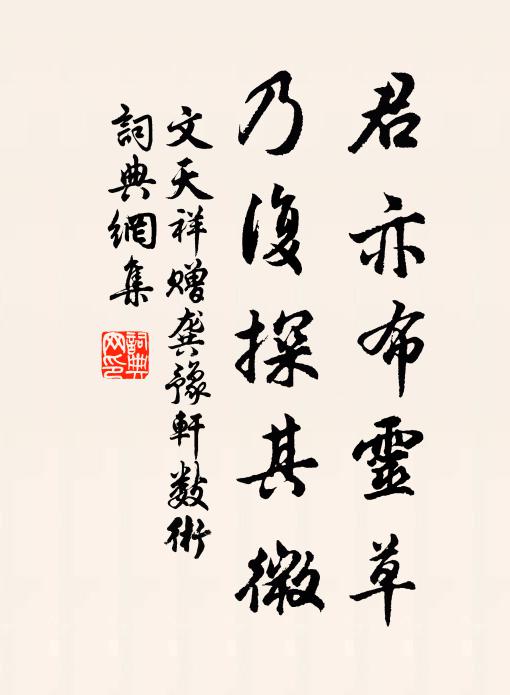 君亦布靈草
乃復探其微
文天祥贈龔豫軒數術
詞典網集
詞典网印